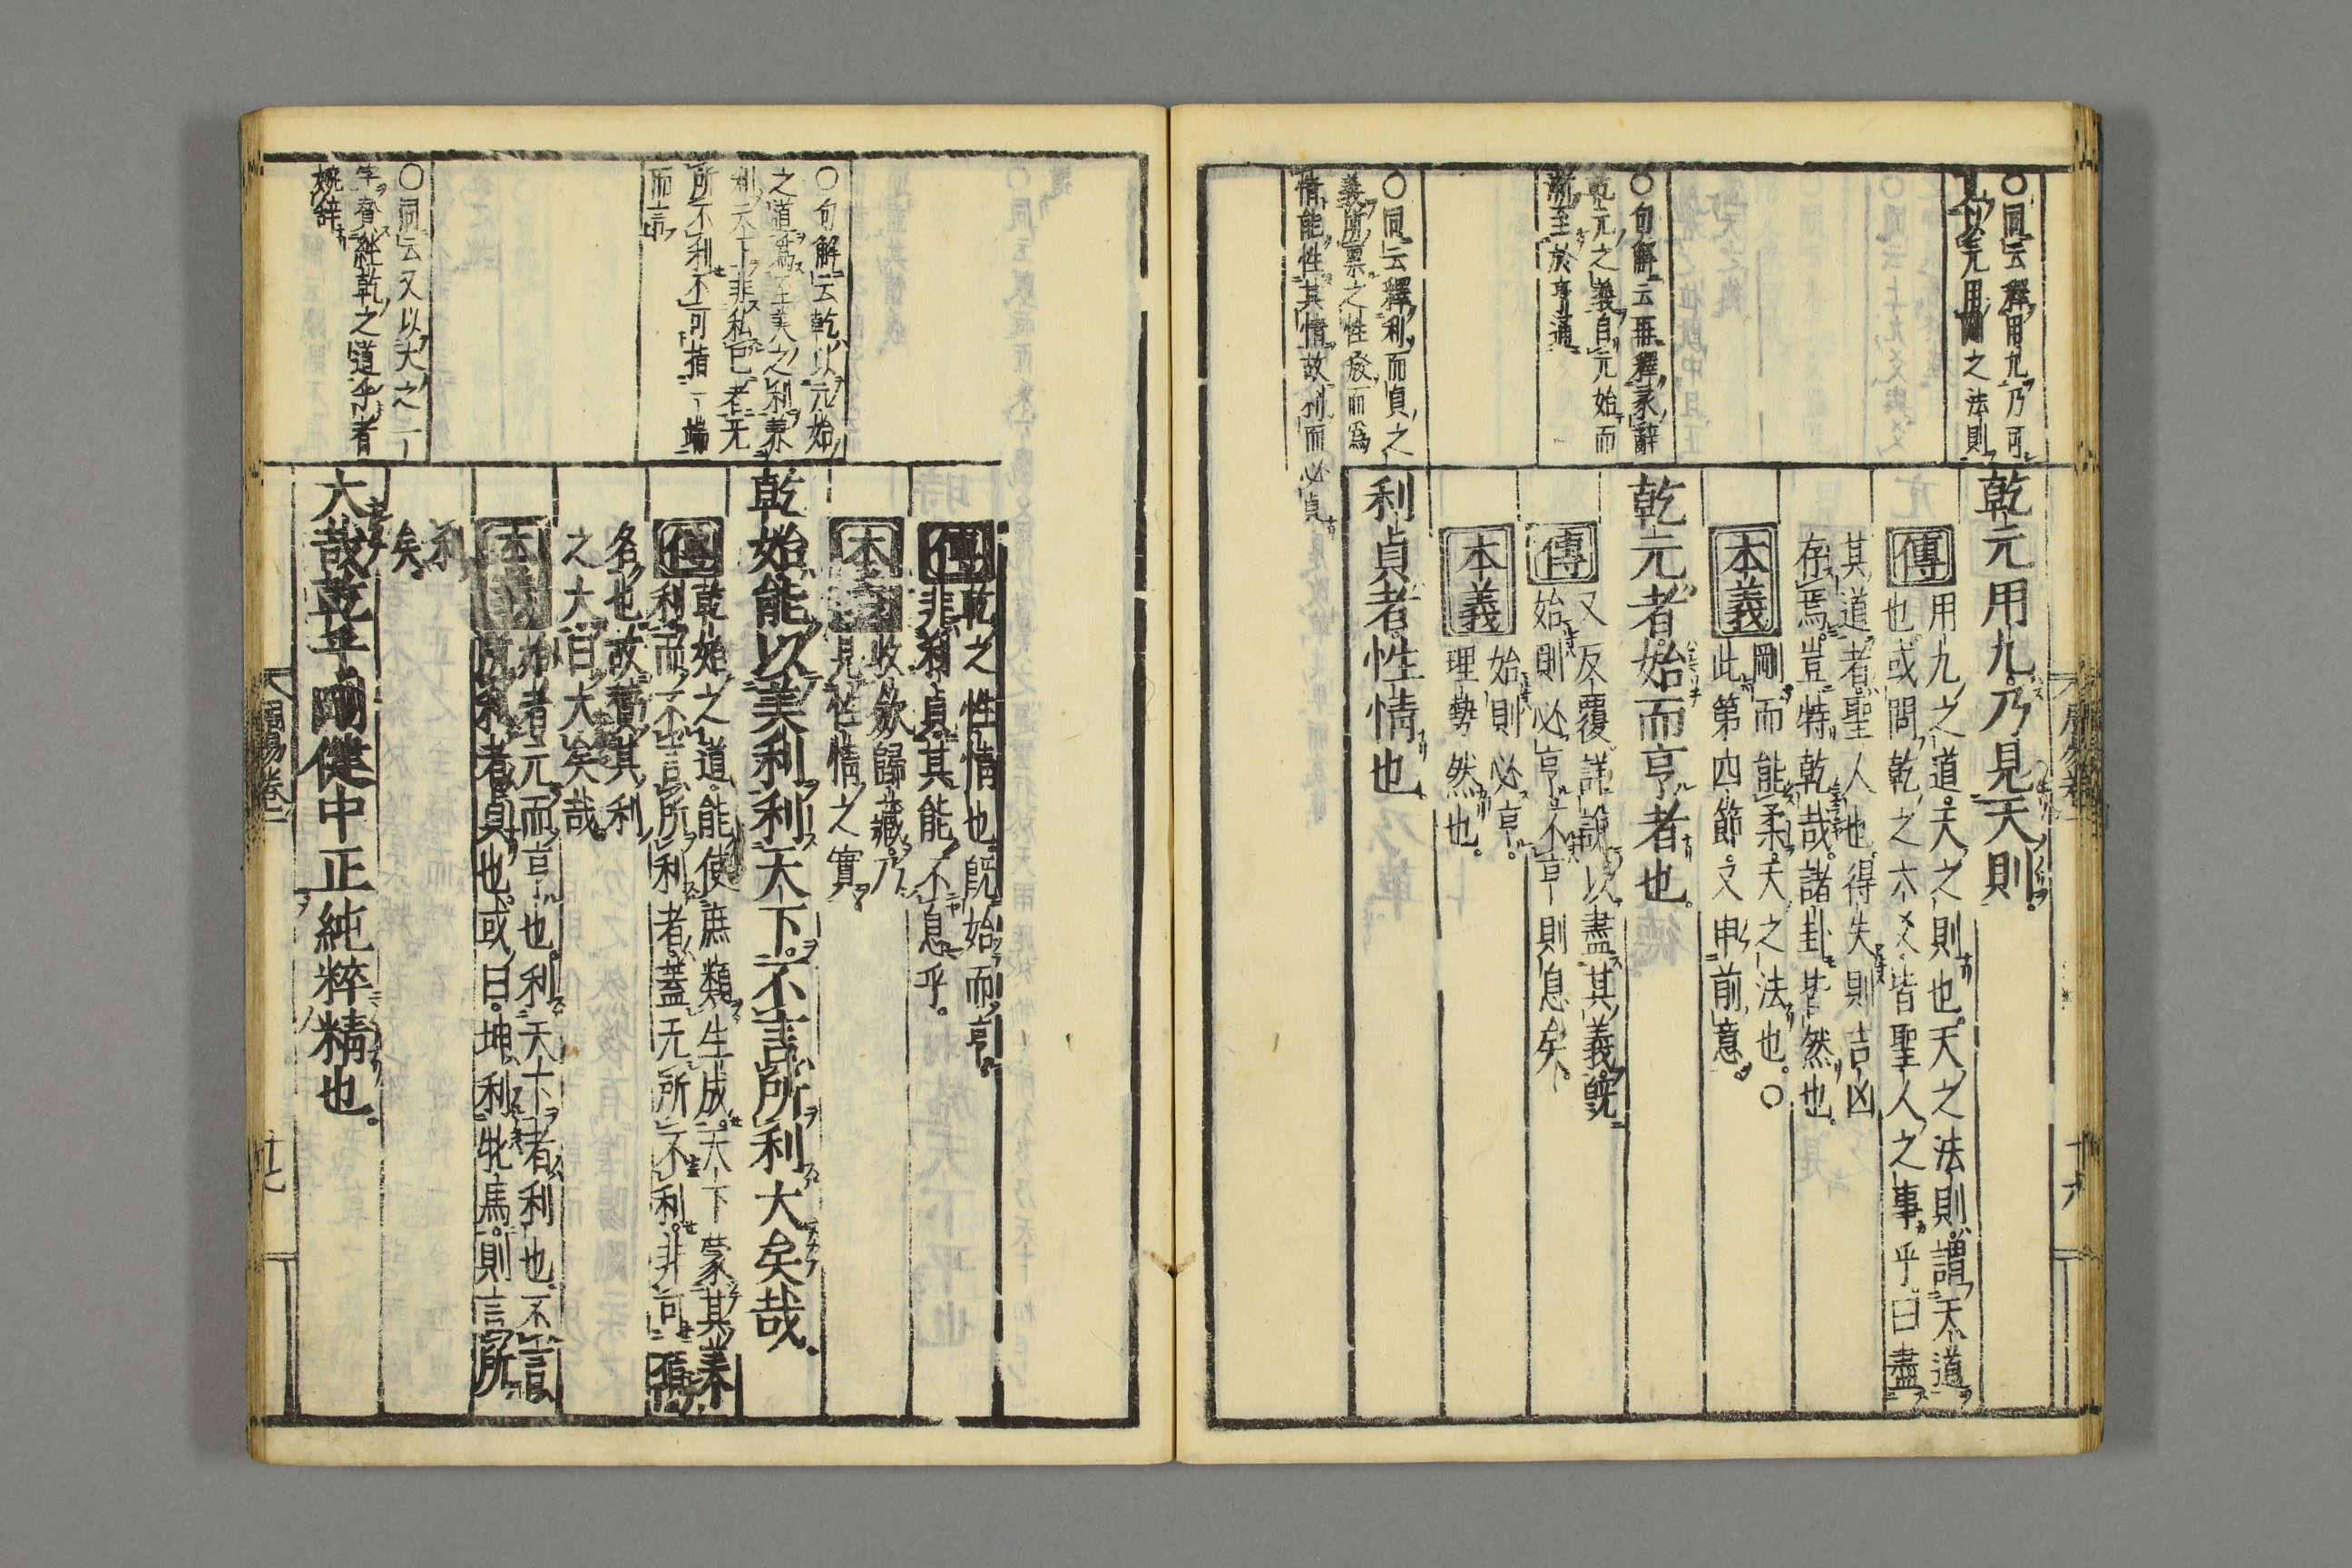 〇同云釋用九乃可
見以乾元用剛之法則
乾元用九乃見天則。
傳
用九之道。天之則也。天之法則。謂天道
也。或問乾之六爻皆聖人之事乎曰盡
其道者聖人也。得失則吉凶
存焉。豈特乾哉。諸卦皆然也。
本義
剛而能柔。天之法也。〇
此第四節。又申前意。
〇句解云再釋彖辭
乾元之義自元始而
漸至於亨通
乾元者。始而亨者也。
傳
又反覆詳說以盡其義。旣
始則必亨。不亨則息矣。
本義
始則必亨。
理勢然也。
〇同云釋利而貞之
義所禀之性發而爲
情能性其情故利而必貞
利貞者。性情也
傳
乾之性情也。旣始而亨。
非利貞其能不息乎。
本義
收斂歸藏。乃
見性情之實。
〇句解云乾以元始
之道爲至美之利兼
利天下非私己者无
所不利不可指一端
而言
乾始能以美利利天下。不言所利大矣哉。
傳
乾始之道。能使庶類生成。天下蒙其美
利。而不言所利者。蓋无所不利。非可指
名也。故贊其利
之大。曰大矣哉。
本義
始者元而亨也。利天下者利也。不言
所利者貞也。或曰。坤利牝馬。則言所
利
矣。
〇同云又以大之一
字賛經乾之道乎者
婉辞
大哉乾乎。剛健中正純粹精也。
周易卷一
十六
周易卷一
十七